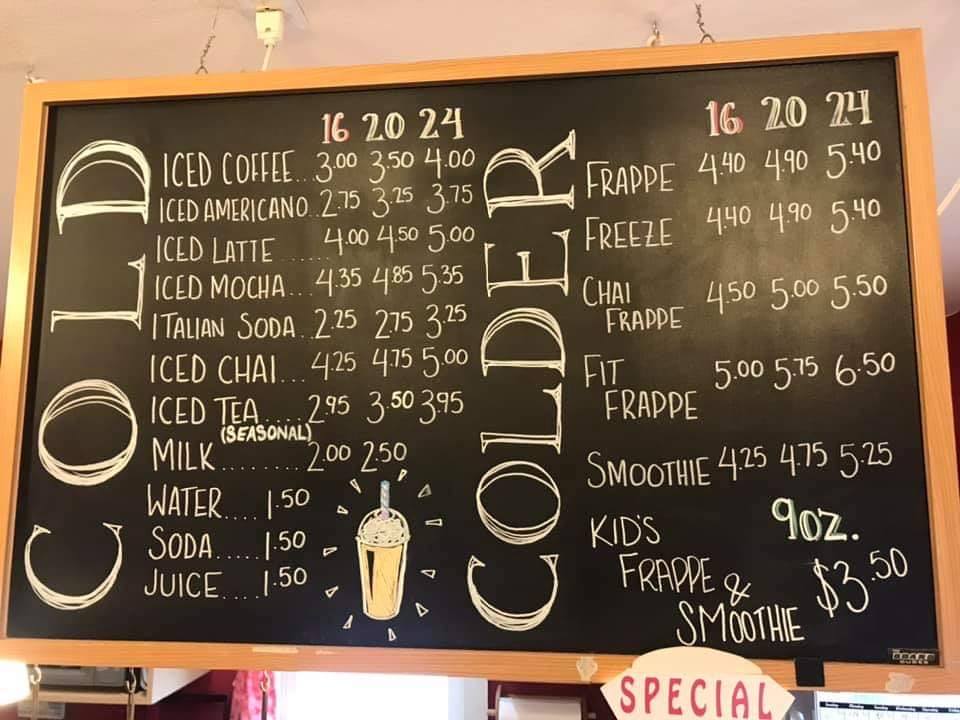 COLD
16 20 24
ICED COFFEE...3.00 3.50 4.00
ICED AMERICANO..2.75 3.25 3.75
ICED LATTE ......4.00 4.50 5.00
ICED MOCHA...4.35 4.85 5.35
ITALIAN SODA..2.25 2.75 3.25
ICED CHAI....4.25 4.75 5.00
ICED TEA.....2.95 3.50 3.95
(SEASONAL)
MILK........2.00 2.50
WATER....1.50
SODA.....1.50
JUICE....1.50
COLDER
16 20 24
FRAPPE 4.40 4.90 5.40
FREEZE 4.40 4.90 5.40
CHAI
FRAPPE 4.50 5.00 5.50
FIT
FRAPPE 5.00 5.75 6.50
SMOOTHIE 4.25 4.75 5.25
KID'S 9oz.
FRAPPE &
SMOOTHIE $3.50
SPECIAL